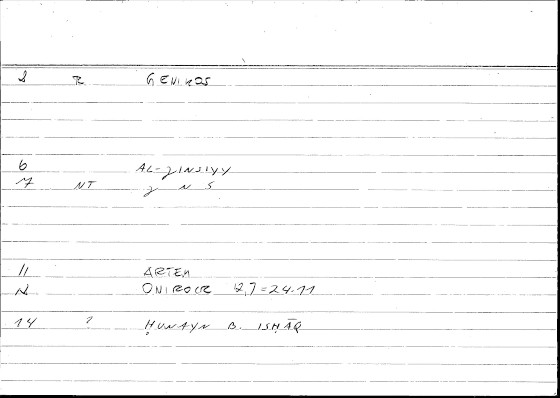 8 R GENIKOS
6 AL-ǧINSIYY
7 NT ǧ N S
11 ARTEM
12 ONIROCR 12,7=24.11
14 ? ḤUNAYN B. ISḤĀQ